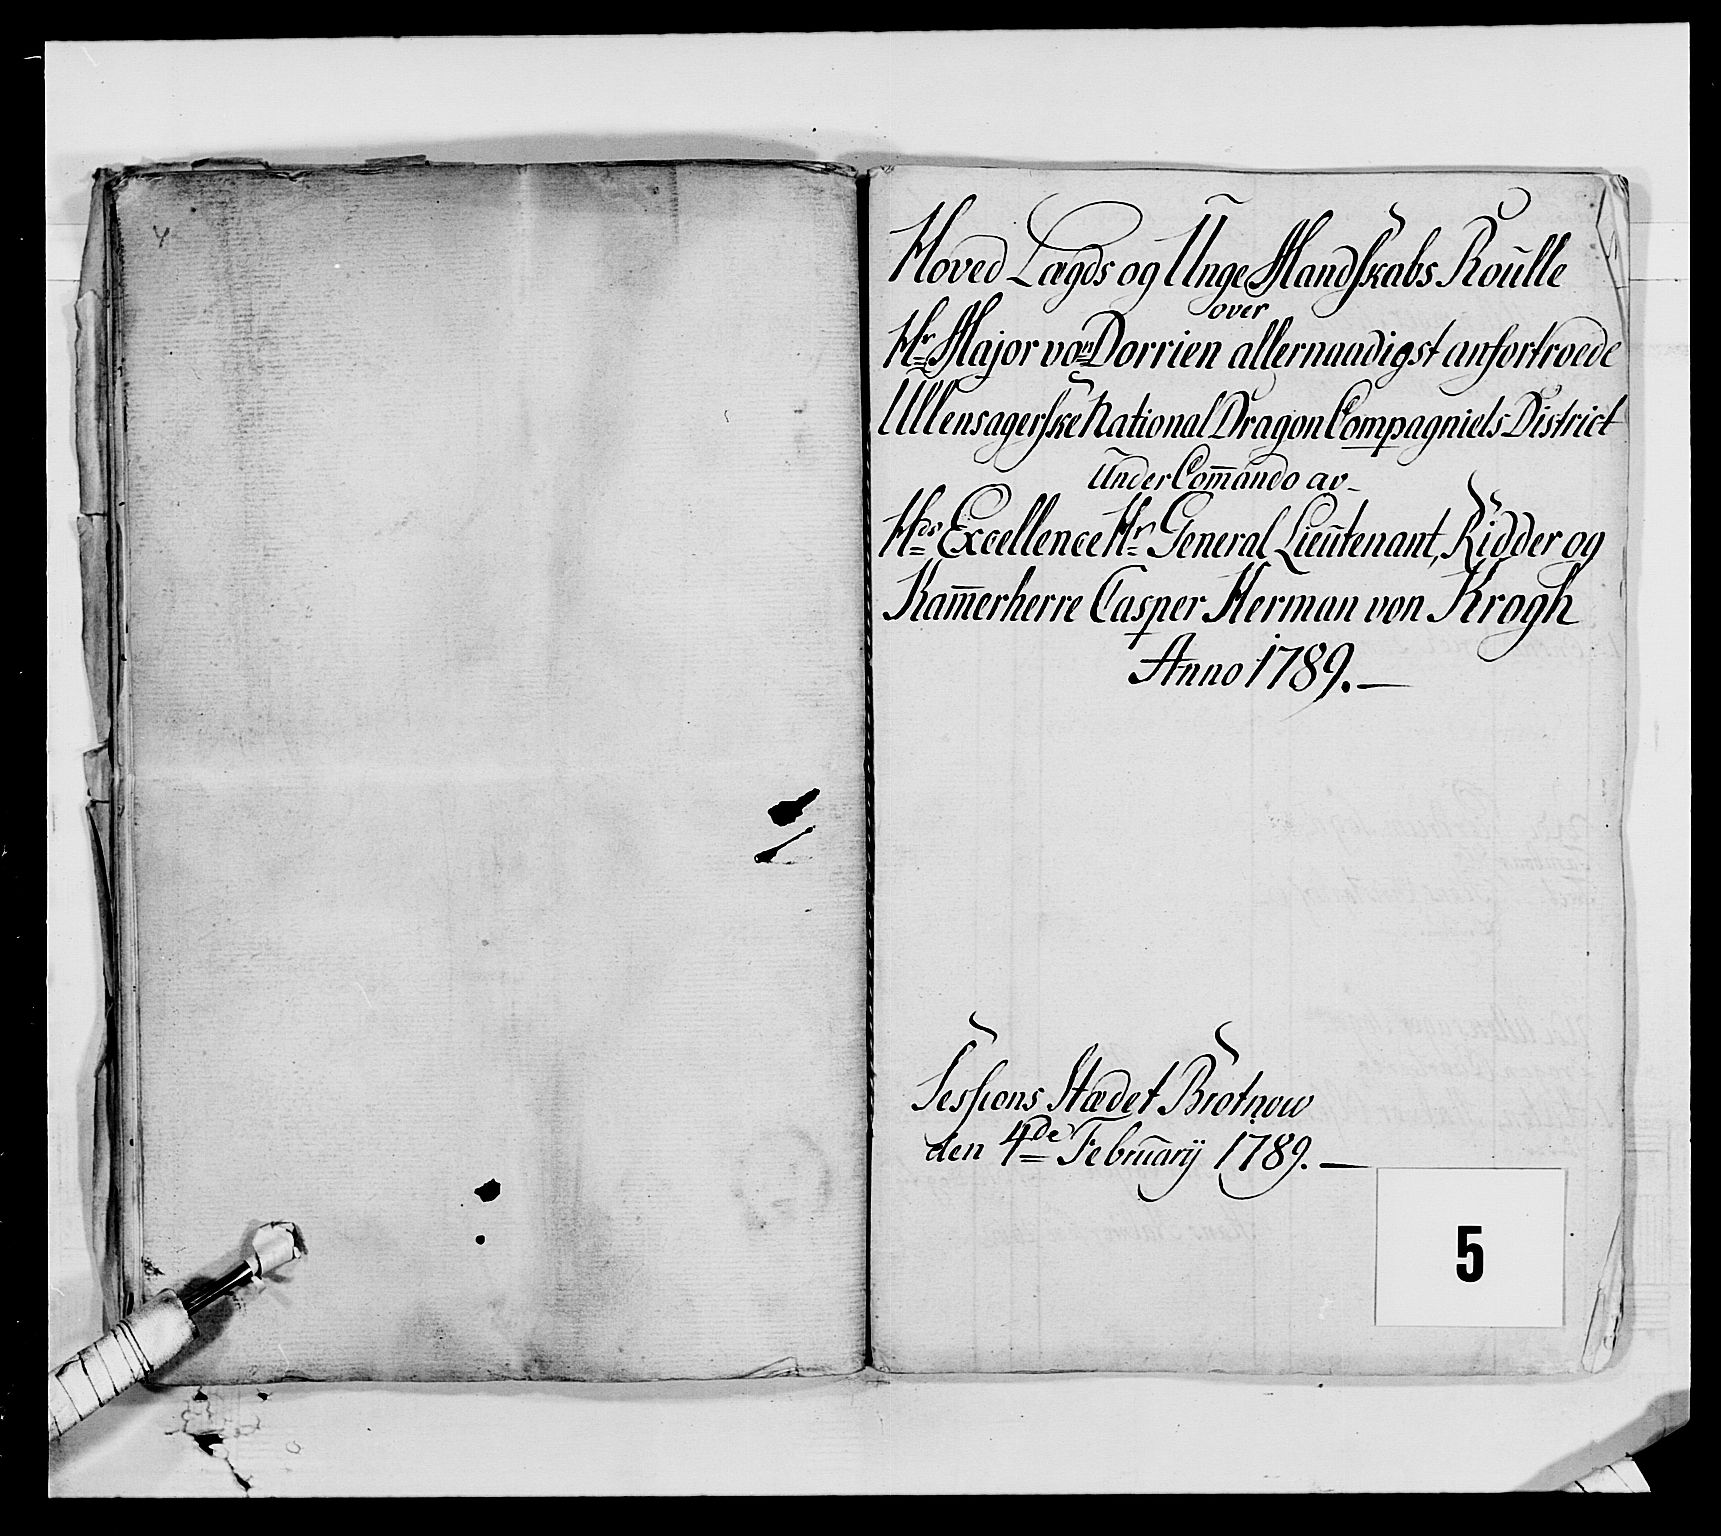 Hoved Lægds og Unge Mandskabs Roulle
over
Hr Major von Dorrien allernaadigst anfortroede
Ullensagerske National Dragon Compagniets District
Under Com̄ando av
Hds Excellence Hr General Lieutenant, Ridder og
Kam̄erherre Casper Herman von Krogh
Anno 1789.
Sessions Stædet Brotnow
den 4de Februarij 1789.
5